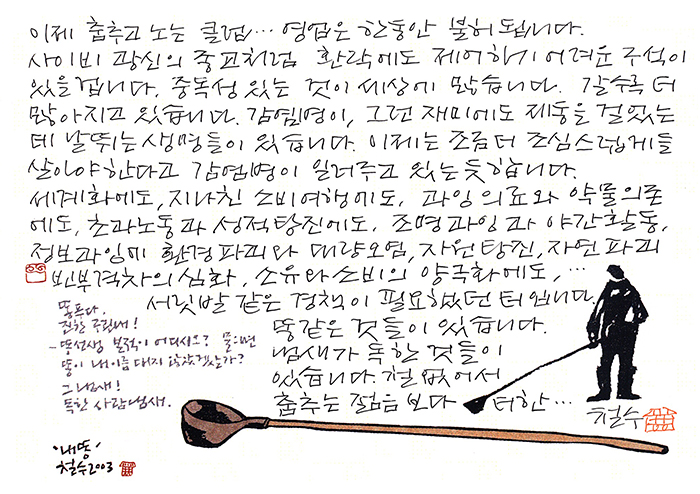 이제 춤추고 노는 클럽… 영업은 한동안 불허 됩니다.
사이비 광신의 종교처럼 환락에도 제어하기 어려운 구석이
있을겁니다. 중독성 있는 것이 세상에 많습니다. 갈수록 더
많아지고 있습니다. 감염병이, 그런 재미에도 제동을 걸었는
데 날뛰는 생명들이 있습니다. 이제는 조금 더 조심스럽게들
살아야한다고 감염병이 일러주고 있는듯 합니다.
세계화에도, 지나친 소비여행에도, 과잉 의료와 약물의존
에도, 초과노동과 성적탕진에도, 조명과잉과 야간활동,
정보과잉에 환경파괴와 대량오염, 자원탕진, 자연파괴
빈부격차의 심화, 소유와 소비의 양극화에도, …
서릿발 같은 경책이 필요했던 터입니다.
똥같은 것들이 있습니다.
냄새가 독한 것들이
있습니다. 철 없어서
춤추는 젊음 보다 더한 …
철수
똥푸다.
진한 구린내!
- 똥선생 본적이 어디시오? 물으면
똥이 내이름 대지 않았겠는가?
그 냄새!
독한 사람냄새.
'내똥'
철수2003